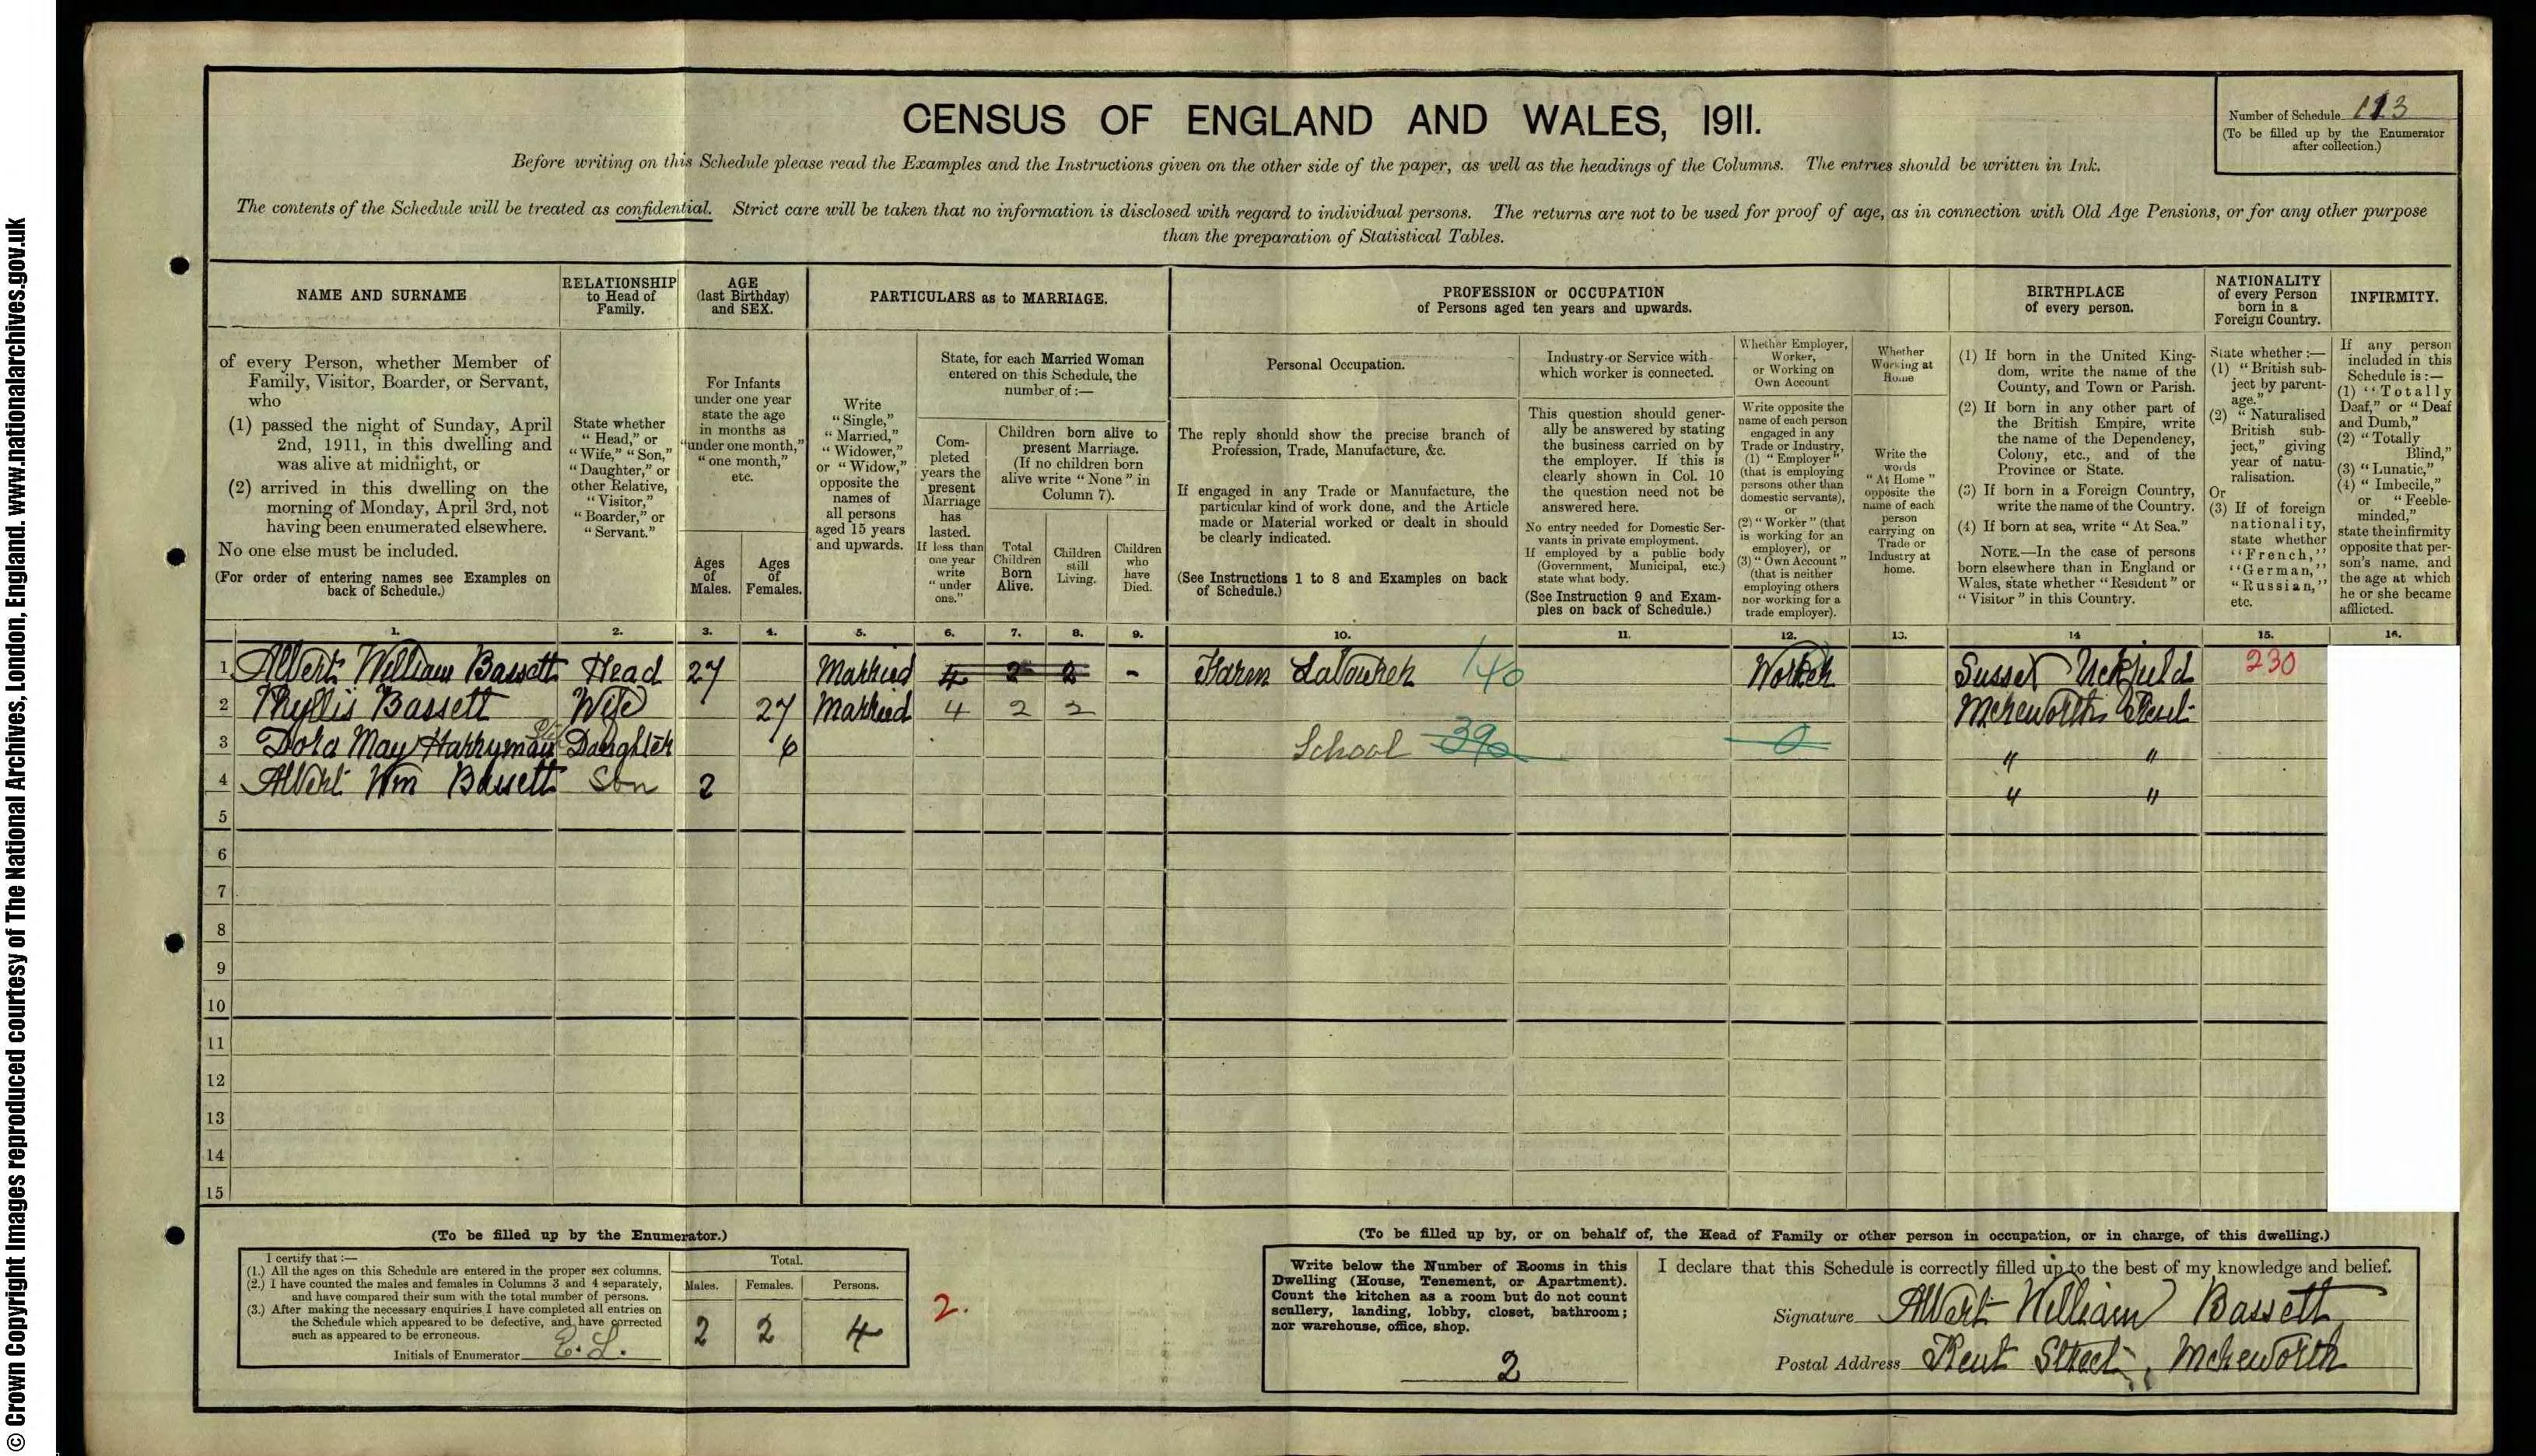 © Crown Copyright Images reproduced courtesy of The National Archives, London, England. www.nationalarchives.gov.uk
CENSUS OF ENGLAND AND WALES, 1911.
Number of Schedule 113
(To be filled up by the Enumerator
after collection.)
Before writing on this Schedule please read the Examples and the Instructions given on the other side of the paper, as well as the headings of the Columns. The entries should be written in Ink.
The contents of the Schedule will be treated as confidential. Strict care will be taken that no information is disclosed with regard to individual persons. The returns are not to be used for proof of age, as in connection with Old Age Pensions, or for any other purpose
than the preparation of Statistical Tables.
NAME AND SURNAME
of every Person, whether Member of
Family, Visitor, Boarder, or Servant,
who
(1) passed the night of Sunday, April
2nd, 1911, in this dwelling and
was alive at midnight, or
(2) arrived in this dwelling on the
morning of Monday, April 3rd, not
having been enumerated elsewhere.
No one else must be included.
(For order of entering names see Examples on
back of Schedule.)
RELATIONSHIP
to Head of
Family.
State whether
"Head," or
"Wife," "Son,"
"Daughter," or
other Relative,
"Visitor,"
"Boarder," or
"Servant."
AGE
(last Birthday)
and SEX.
For Infants
under one year
state the age
in months as
"under one month,"
"one month,"
etc.
Ages
of
Males.
Ages
of
Females.
PARTICULARS as to MARRIAGE.
Write
"Single,"
"Married,"
"Widower,"
or "Widow,"
opposite the
names of
all persons
aged 15 years
and upwards.
State, for each Married Woman
entered on this Schedule, the
number of:—
Com-
pleted
years the
present
Marriage
has
lasted.
If less than
one year
write
"under
one."
Children born alive to
present Marriage.
(If no children born
alive write "None" in
Column 7).
Total
Children
Born
Alive.
Children
still
Living.
Children
who
have
Died.
PROFESSION or OCCUPATION
of Persons aged ten years and upwards.
Personal Occupation.
The reply should show the precise branch of
Profession, Trade, Manufacture, &c.
If engaged in any Trade or Manufacture, the
particular kind of work done, and the Article
made or Material worked or dealt in should
be clearly indicated.
(See Instructions 1 to 8 and Examples on back
of Schedule.)
Industry or Service with
which worker is connected.
This question should gener-
ally be answered by stating
the business carried on by
the employer. If this is
clearly shown in Col. 10
the question need not be
answered here.
No entry needed for Domestic Ser-
vants in private employment.
If employed by a public body
(Government, Municipal, etc.)
state what body.
(See Instruction 9 and Exam-
ples on back of Schedule.)
Whether Employer,
Worker,
or Working on
Own Account
Write opposite the
name of each person
engaged in any
Trade or Industry,
(1) "Employer"
(that is employing
persons other than
domestic servants),
or
(2) "Worker" (that
is working for an
employer), or
(3) "Own Account"
(that is neither
employing others
nor working for a
trade employer).
Whether
Working at
Home
Write the
words
"At Home"
opposite the
name of each
person
carrying on
Trade or
Industry at
home.
BIRTHPLACE
of every person.
(1) If born in the United King-
dom, write the name of the
County, and Town or Parish.
(2) If born in any other part of
the British Empire, write
the name of the Dependency,
Colony, etc., and of the
Province or State.
(3) If born in a Foreign Country,
write the name of the Country.
(4) If born at sea, write "At Sea."
NOTE.—In the case of persons
born elsewhere than in England or
Wales, state whether "Resident" or
"Visitor" in this Country.
NATIONALITY
of every Person
born in a
Foreign Country.
State whether:—
(1) "British sub-
ject by parent-
age."
(2) "Naturalised
British sub-
ject," giving
year of natu-
ralisation.
Or
(3) If of foreign
nationality,
state whether
"French,"
"German,"
"Russian,"
etc.
INFIRMITY.
If any person
included in this
Schedule is:—
(1) "Totally
Deaf," or "Deaf
and Dumb,"
(2) "Totally
Blind,"
(3) "Lunatic,"
(4) "Imbecile,"
or "Feeble-
minded,"
state the infirmity
opposite that per-
son's name, and
the age at which
he or she became
afflicted.
1. 2. 3. 4. 5. 6. 7. 8. 9. 10. 11. 12. 13. 14 15. 16.
1 Albert William Bassett Head 27 Married 4 2 2 - Farm Labourer 140 Worker Sussex Uckfield 230
2 Phyllis Bassett Wife 27 Married 4 2 2 Mereworth Kent
3 Dora May Harryman Daughter 6 School 390 0 " "
4 Albert Wm Bassett Son 2 " "
5
6
7
8
9
10
11
12
13
14
15
(To be filled up by the Enumerator.)
I certify that:—
(1.) All the ages on this Schedule are entered in the proper sex columns.
(2.) I have counted the males and females in Columns 3 and 4 separately,
and have compared their sum with the total number of persons.
(3.) After making the necessary enquiries I have completed all entries on
the Schedule which appeared to be defective, and have corrected
such as appeared to be erroneous.
Initials of Enumerator E. L.
Total.
Males. Females. Persons.
2 2 4
2.
(To be filled up by, or on behalf of, the Head of Family or other person in occupation, or in charge, of this dwelling.)
Write below the Number of Rooms in this
Dwelling (House, Tenement, or Apartment).
Count the kitchen as a room but do not count
scullery, landing, lobby, closet, bathroom;
nor warehouse, office, shop.
2
I declare that this Schedule is correctly filled up to the best of my knowledge and belief.
Signature Albert William Bassett
Postal Address Kent Street, Mereworth